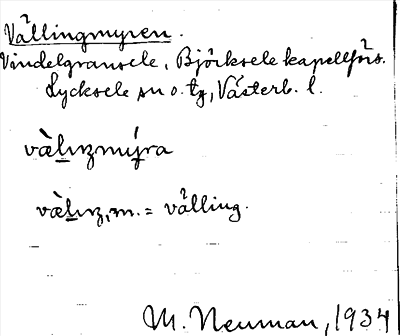 Vällingmyren.
Vindelgransele, Björksele kapellförs.
Lycksele sn o. tg, Västerb. l.
vælıŋmýra
vælıŋ, m. = välling.
M. Neuman, 1934